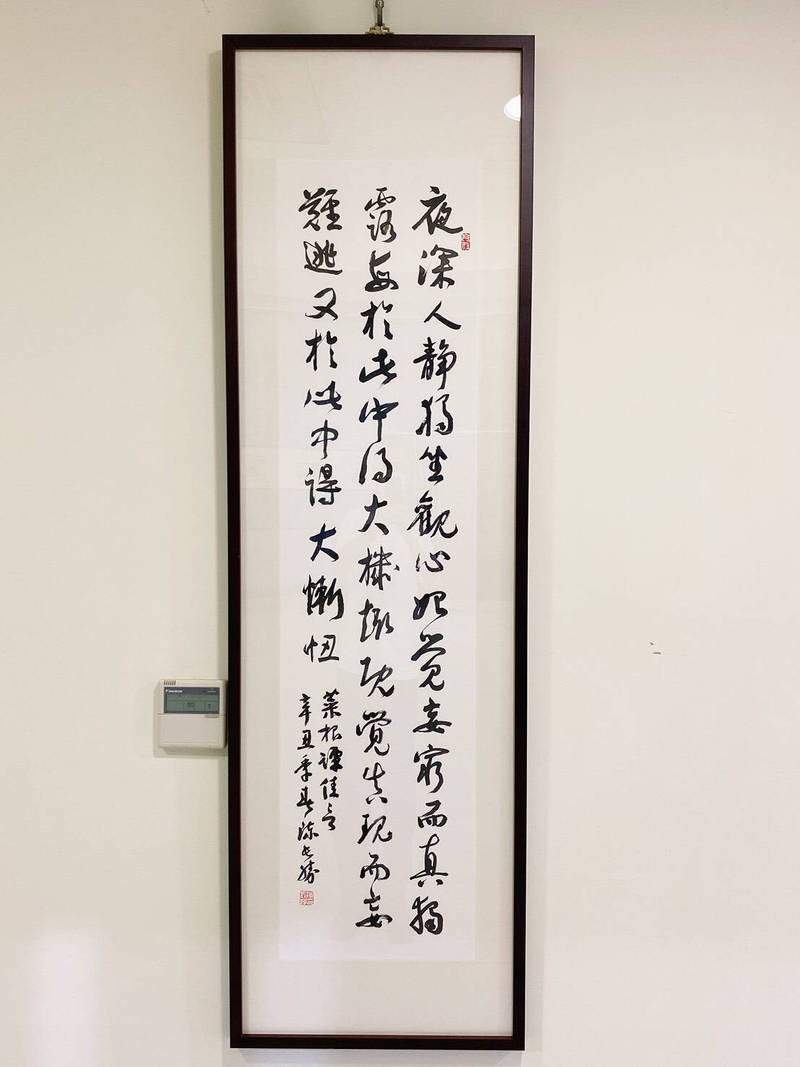 夜深人靜獨坐觀心始覺妄窮而真獨
露每於此中得大機趣既覺真現而妄
難逃又於此中得大慚忸
菜根譚佳言
辛丑季春陳
DAIKIN